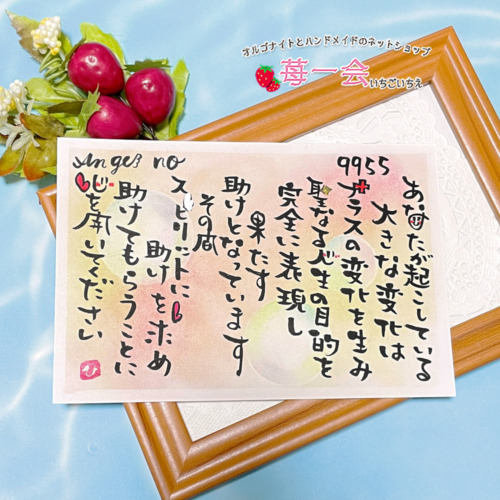 オルゴナイトとハンドメイドのネットショップ
苺一会
いちごいちえ
Angel no
9955
あなたが起こしている
大きな変化は
プラスの変化を生み
聖なる人生の目的を
完全に表現し
果たす
助けとなっています
その間
スピリットに
助けを求め
助けてもらうことに
心を開いてください